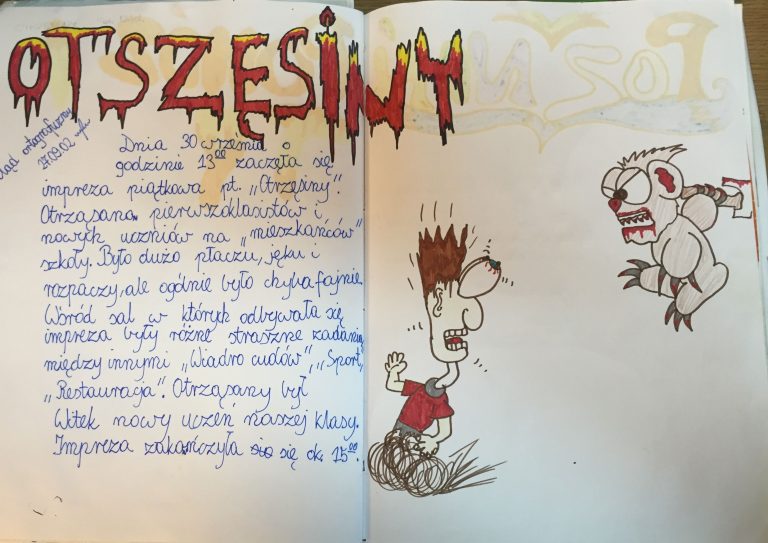 OTSZĘSINY
błąd ortograficzny
27.09.02
Dnia 30 września o
godzinie 13⁰⁰ zaczęła się
impreza piątkowa pt. „Otrzęsiny".
Otrząsano pierwszoklasistów i
nowych uczniów na „mieszkańców"
szkoły. Było dużo płaczu, jęku i
rozpaczy, ale ogólnie było chyba fajnie.
Wśród sal w których odbywała się
impreza były różne straszne zadania
między innymi „Wiadro cudów", „Sport",
„Restauracja". Otrząsany był
Witek nowy uczeń naszej klasy.
Impreza zakańczyła się ok. 15⁰⁰.